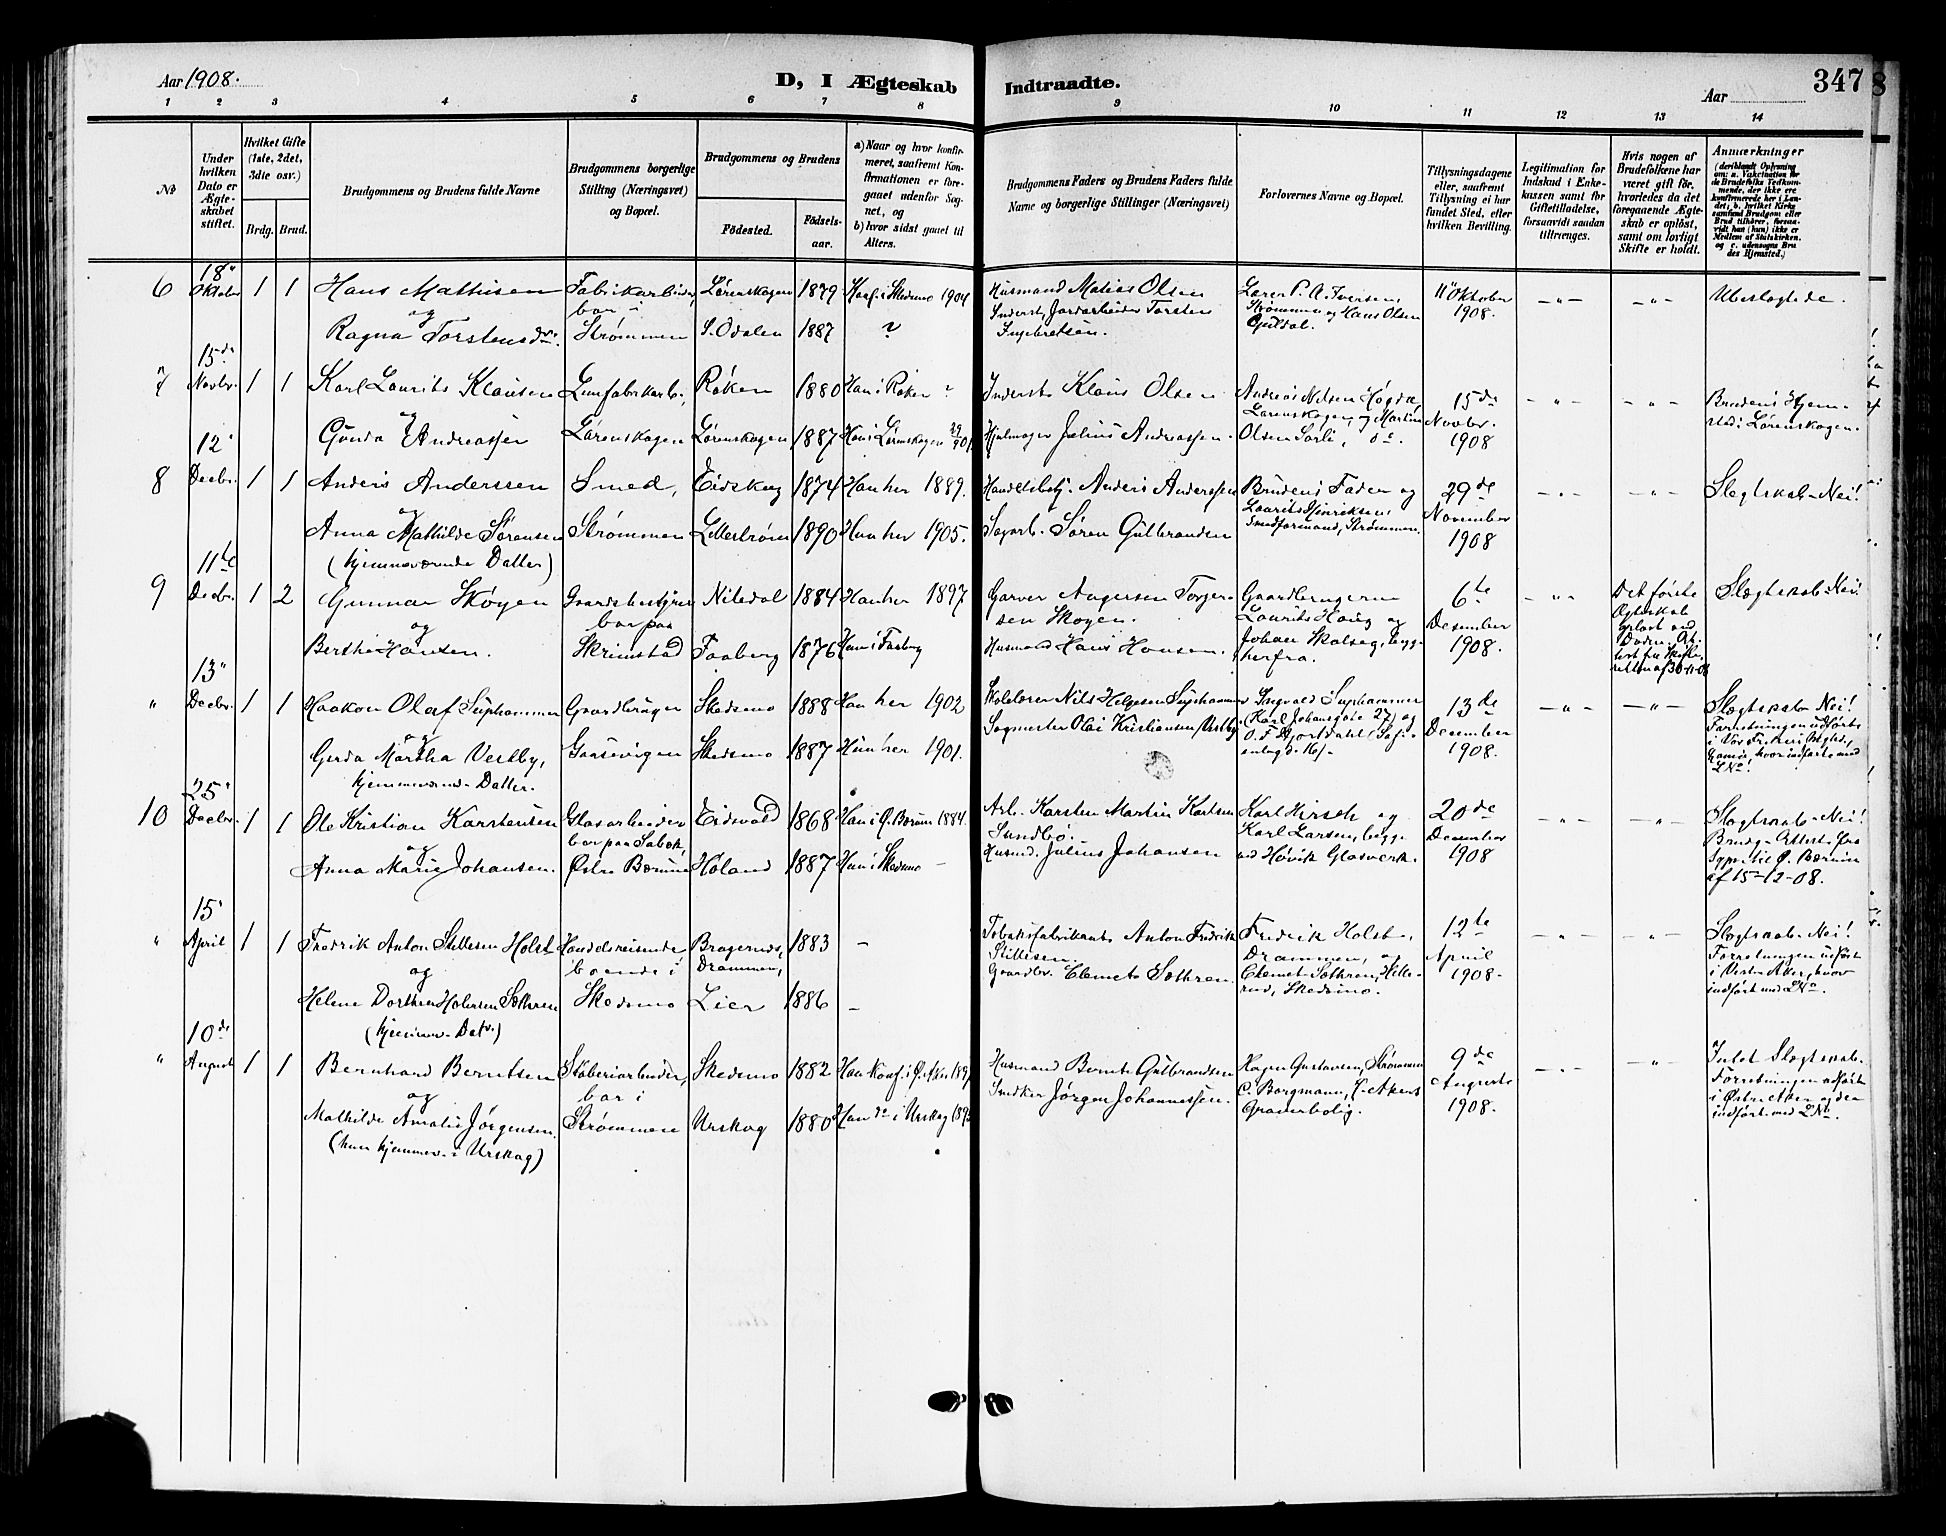 Aar 1908.
D, I Ægteskab
Indtraadte.
Aar
347
1 2 3 4 5 6 7 8 9 10 11 12 13 14
No
Under hvilken Dato er Ægteskabet stiftet.
Hvilket Gifte (1ste, 2det, 3die osv.)
Brdg. Brud.
Brudgommens og Brudens fulde Navne
Brudgommens borgerlige Stilling (Næringsvei) og Bopæl.
Brudgommens og Brudens
Fødested.
Fødselsaar.
a) Naar og hvor konfirmeret, saafremt Konfirmationen er foregaaet udenfor Sognet, og
b) hvor sidst gaaet til Alters.
Brudgommens Faders og Brudens Faders fulde Navne og borgerlige Stillinger (Næringsvei)
Forlovernes Navne og Bopæl.
Tillysningsdagene eller, saafremt Tillysning ei har fundet Sted, efter hvilken Bevilling.
Legitimation for Indskud i Enkekassen samt for Giftetilladelse, forsaavidt saadan tiltrænges.
Hvis nogen af Brudefolkene har været gift før, hvorledes da det foregaaende Ægteskab er opløst, samt om lovligt Skifte er holdt.
Anmærkninger
6 18" Oktober 1 1 Hans Mathisen Fabrikarbeider Lørenskogen 1879 Konf. i Skedsmo 1904 Husmand Matias Olsen Lærer P. A. Iversen, 11" Oktober 1908. Ubeslægtede.
og bor i Strømmen og Hans Olsen
Ragna Torstensdr. Strømmen S. Odalen 1887 ? Inderst, Jordarbeider Torsten Ingebretsen.
7 15de Novbr. 1 1 Karl Laurits Klausen Røken 1880 Han i Røken ? Inderst Klaus Olsen Andreas Nilsen Høgda 15de Novbr. 1908 Brudens Hjemsted: Lørenskogen.
og Lørenskogen, og Martin
Gunda Andreassen Lørenskogen Lørenskogen 1887 Hun i Lørenskogen Hjulmager Julius Andreassen. Olsen Sørli, do.
8 12" Decbr. 1 1 Anders Anderssen Smed, Eidskog 1874 Han her 1889. Handelsbetj. Anders Anderssen Brudens Fader og 29de November 1908 Slegtskab - Nei!
og Laurits Hinriksen,
Anna Mathilde Sørensen Strømmen Lillestrøm 1890 Hun her 1905. Sagarb. Søren Gulbrandsen Smedformand, Strømmen.
(hjemmeværende Datter)
9 11te Decbr. 1 2 Gunnar Skøyen Gaardsbestyrer Nitedal 1884 Han her 1897 Garver Aagersen Torgersen Skøyen. Gaardbrugerne 6te Desember 1908. Det første Ægteskab opløst ved Døden. Attest fra Skifteretten af 30-11-08 Slægtskab - Nei!
og bor paa Laurits Haug og
Berthe Hansen. Skrimstad Faaberg 1876 Hun i Faaberg Husmand Hans Hansen. Johan Skolseg, begge herfra.
" 13" Decbr. 1 1 Haakon Olaf Siphammer Gaardbruger Skedsmo 1888 Han her 1902 Skolelærer Nils Helgesen Siphammer Ingvald Siphammer 13de December 1908. Slægtskab - Nei!
og (Karl Johansgate 27) og Forretningen udført
Gerda Martha Vestby, Skedsmo 1887 Hun her 1901. Sagmester Olai Kristiansen Vestby O. F. Hjortdahl i Vor Frelsers
hjemmeværende Datter. hvor indført med L No.
10 25" Decbr. 1 1 Ole Kristian Karstensen Glasarbeider Eidsvold 1868 Han i Ø. Bærum 1884. Arb. Karsten Martin Karlsen Sundbø. Karl Hirsch og 20de December 1908 Slægtskab - Nei!
og bor paa Karl Larsen, begge
Anna Marie Johansen. Østre Bærum Høland 1887 Hun i Skedsmo - Husmd. Julius Johansen ved Høvik Glasverk. Ø. Bærum af 15-12-08.
" 15" April 1 1 Fredrik Anton Stillesen Holst Handelsreisende, Bragernes, Drammen, 1883 - Tobaksfabrikant Anton Fredrik Stillesen. Fredrik Holst, 12te April 1908. Slægtskab - Nei!
og boende i Drammen, og Forretningen udført
Helene Dorthea Halvorsen Sæthren Skedsmo Lier 1886 - Gaardbr. Clemet Sæthren. Clemet Sæthren, Skedsmo. i Vestre Aker, hvor indført med L No.
(hjemmev. Datr.)
" 10de August 1 1 Bernhard Berntsen Støberiarbeider, Skedsmo 1882 Han Konf. i Ø. Aker Husmand Bernt Gulbrandsen Hagen Gustavsen, Strømmen 9de Augusti 1908. Intet Slægtskab.
og bor i C. Borgmann, Forretningen udført
Mathilde Amalie Jørgensen. Strømmen Urskog 1880 Hun do i Urskog Snedker Jørgen Johannessen. Graverbolig. i Østre Aker og der indført med L No.
(hun hjemmev. i Urskog)